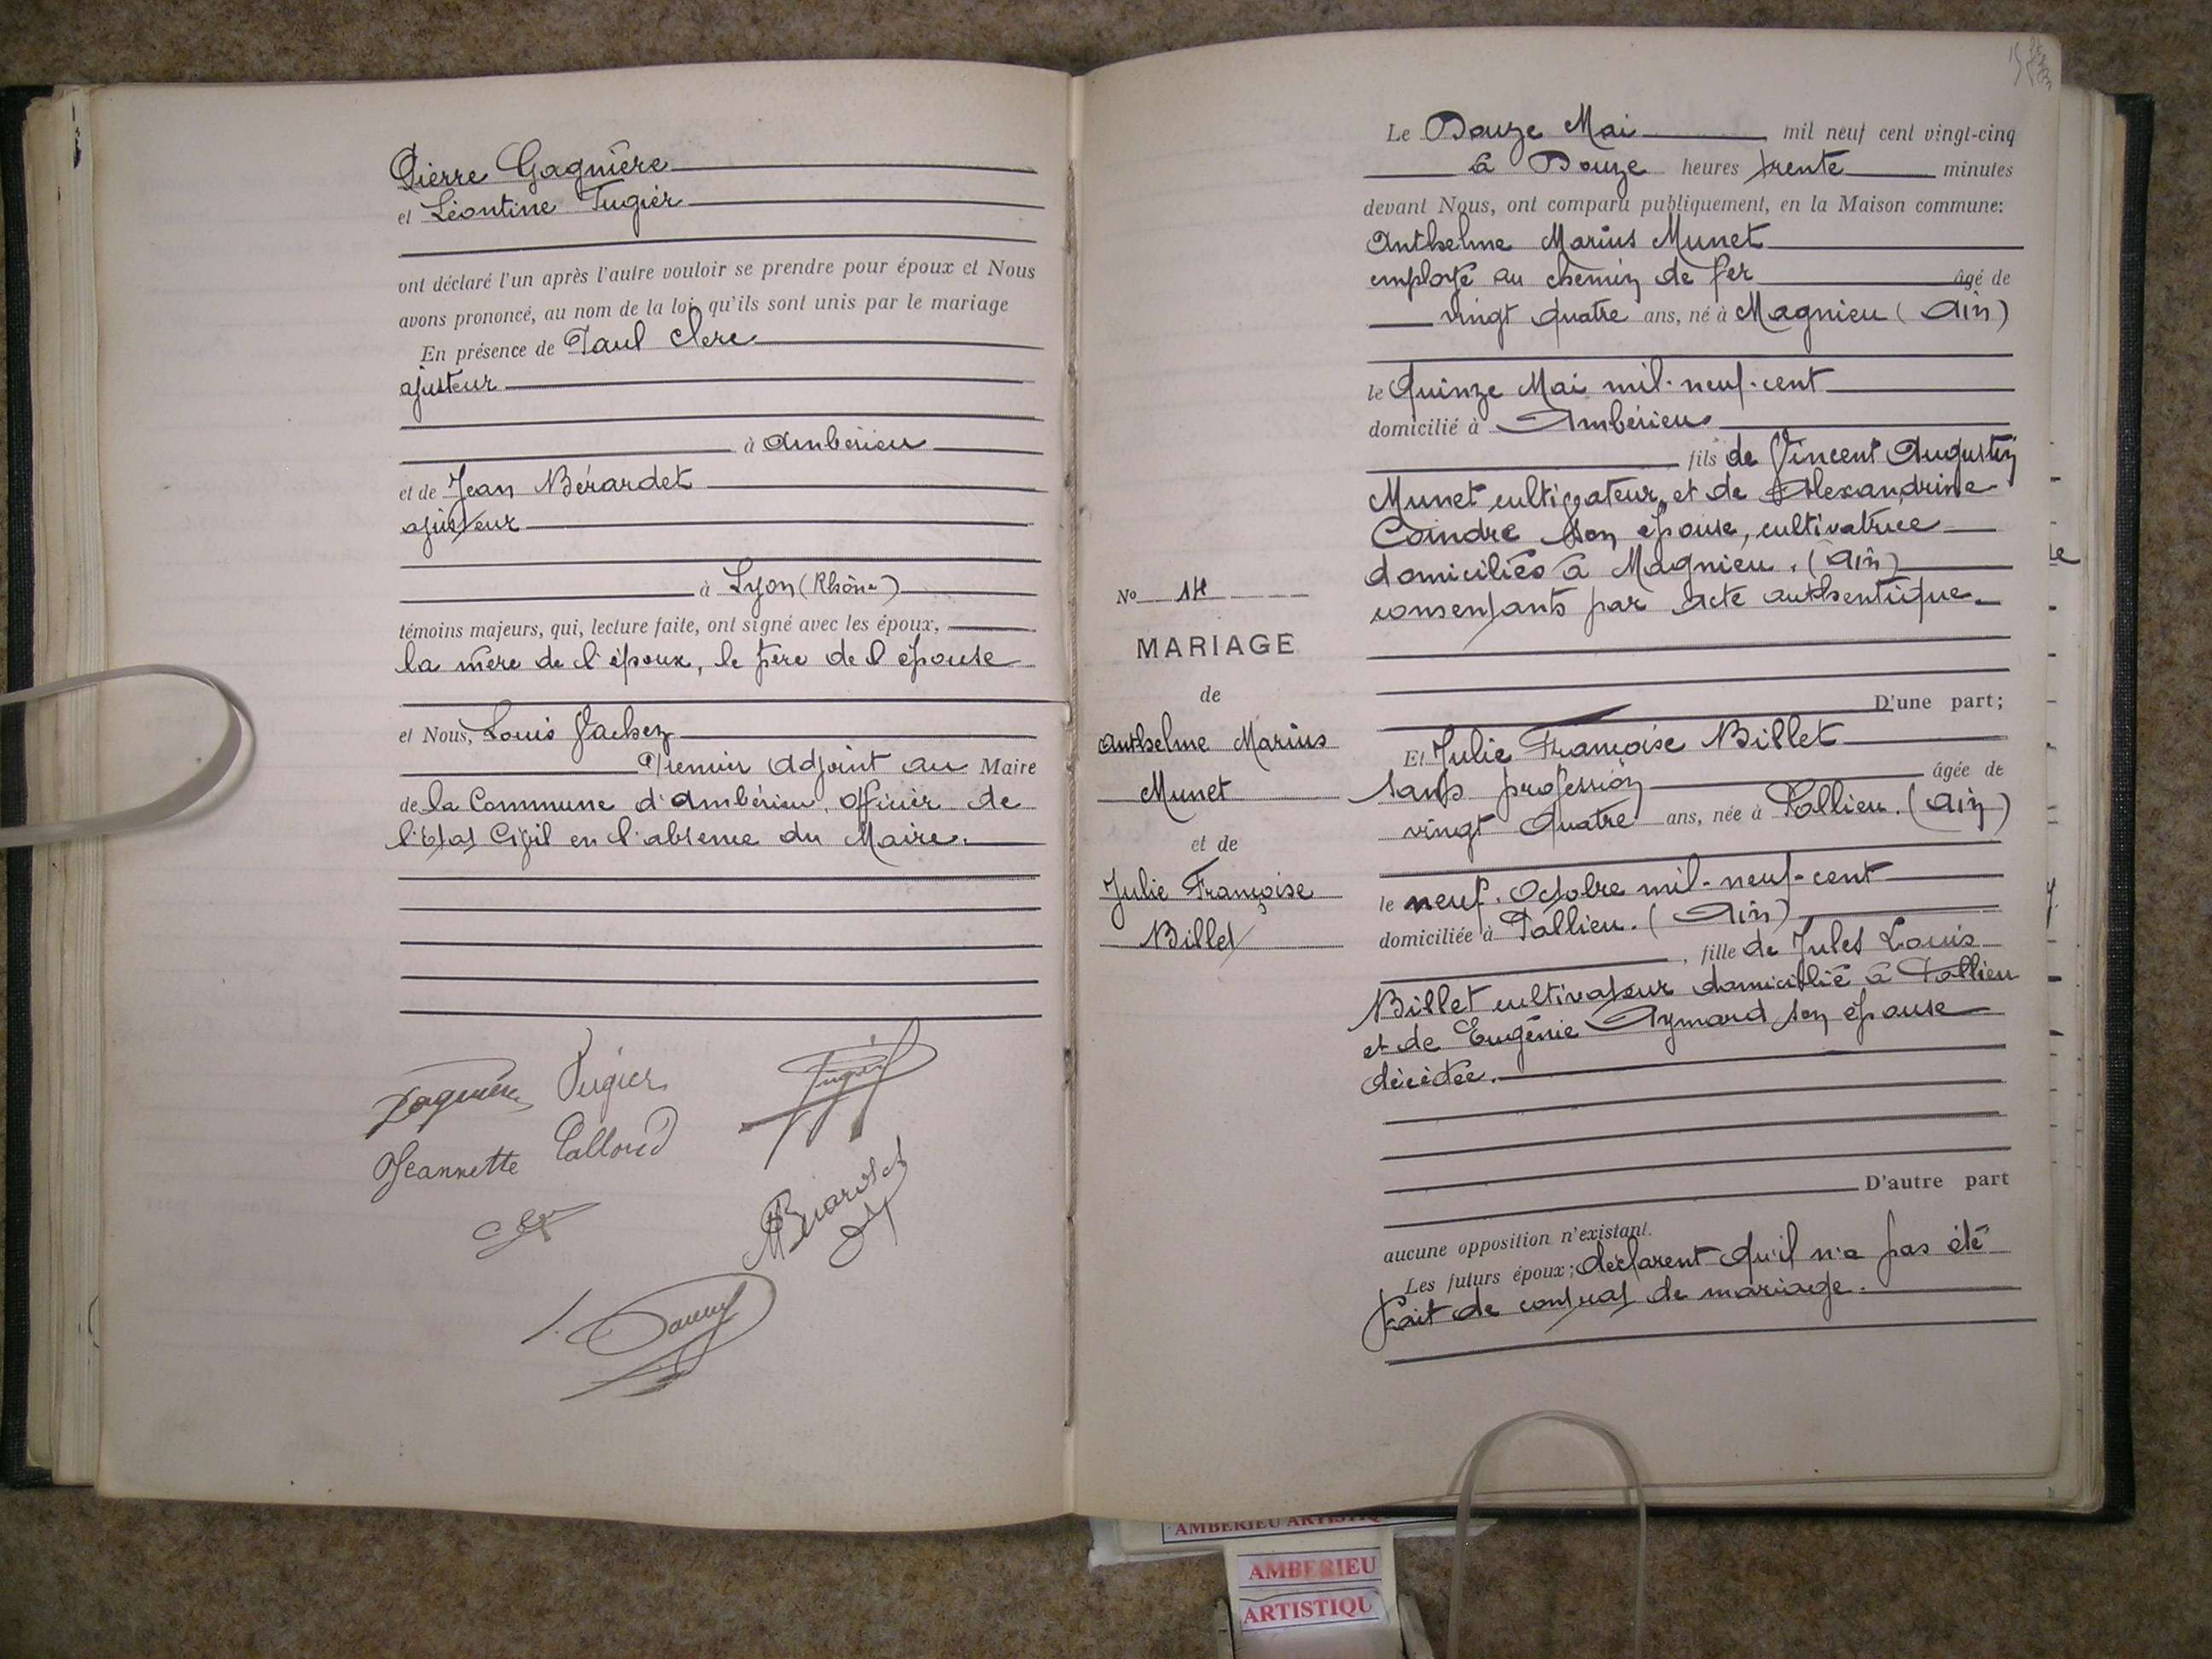 Pierre Gagnière
et Léontine Tugier
ont déclaré l'un après l'autre vouloir se prendre pour époux et Nous
avons prononcé, au nom de la loi, qu'ils sont unis par le mariage
En présence de Paul Clerc
ajusteur
à Ambérieu
et de Jean Bérardet
ajusteur
à Lyon (Rhône)
témoins majeurs, qui, lecture faite, ont signé avec les époux,
la mère de l'époux, le père de l'épouse
et Nous, Louis
Premier Adjoint au Maire
de la Commune d'Ambérieu, officier de
l'Etat Civil en l'absence du Maire.
Gagnière Tugier Tugier
Jeannette
Le Douze Mai mil neuf cent vingt-cinq
à Douze heures trente minutes
devant Nous, ont comparu publiquement, en la Maison commune:
Anthelme Marius Munet
employé au chemin de fer âgé de
vingt quatre ans, né à Magnieu (Ain)
le Quinze Mai mil-neuf-cent
domicilié à Ambérieu
fils de Vincent Augustin
Munet cultivateur, et de Alexandrine
Coindre son épouse, cultivatrice
domiciliés à Magnieu. (Ain)
consentants par acte authentique.
D'une part;
Nº 14
MARIAGE
de
Anthelme Marius
Munet
et de
Julie Françoise
Billet
Et Julie Françoise Billet
sans profession âgée de
vingt quatre ans, née à Pollieu. (Ain)
le neuf. Octobre mil-neuf-cent
domiciliée à Pollieu. (Ain)
, fille de Jules Louis
Billet cultivateur domicilié à Pollieu
et de Eugénie Aymard son épouse
décédée.
D'autre part
aucune opposition n'existant.
Les futurs époux; déclarent qu'il n'a pas été
fait de contrat de mariage.
AMBERIEU
AMBERIEU
ARTISTIQU